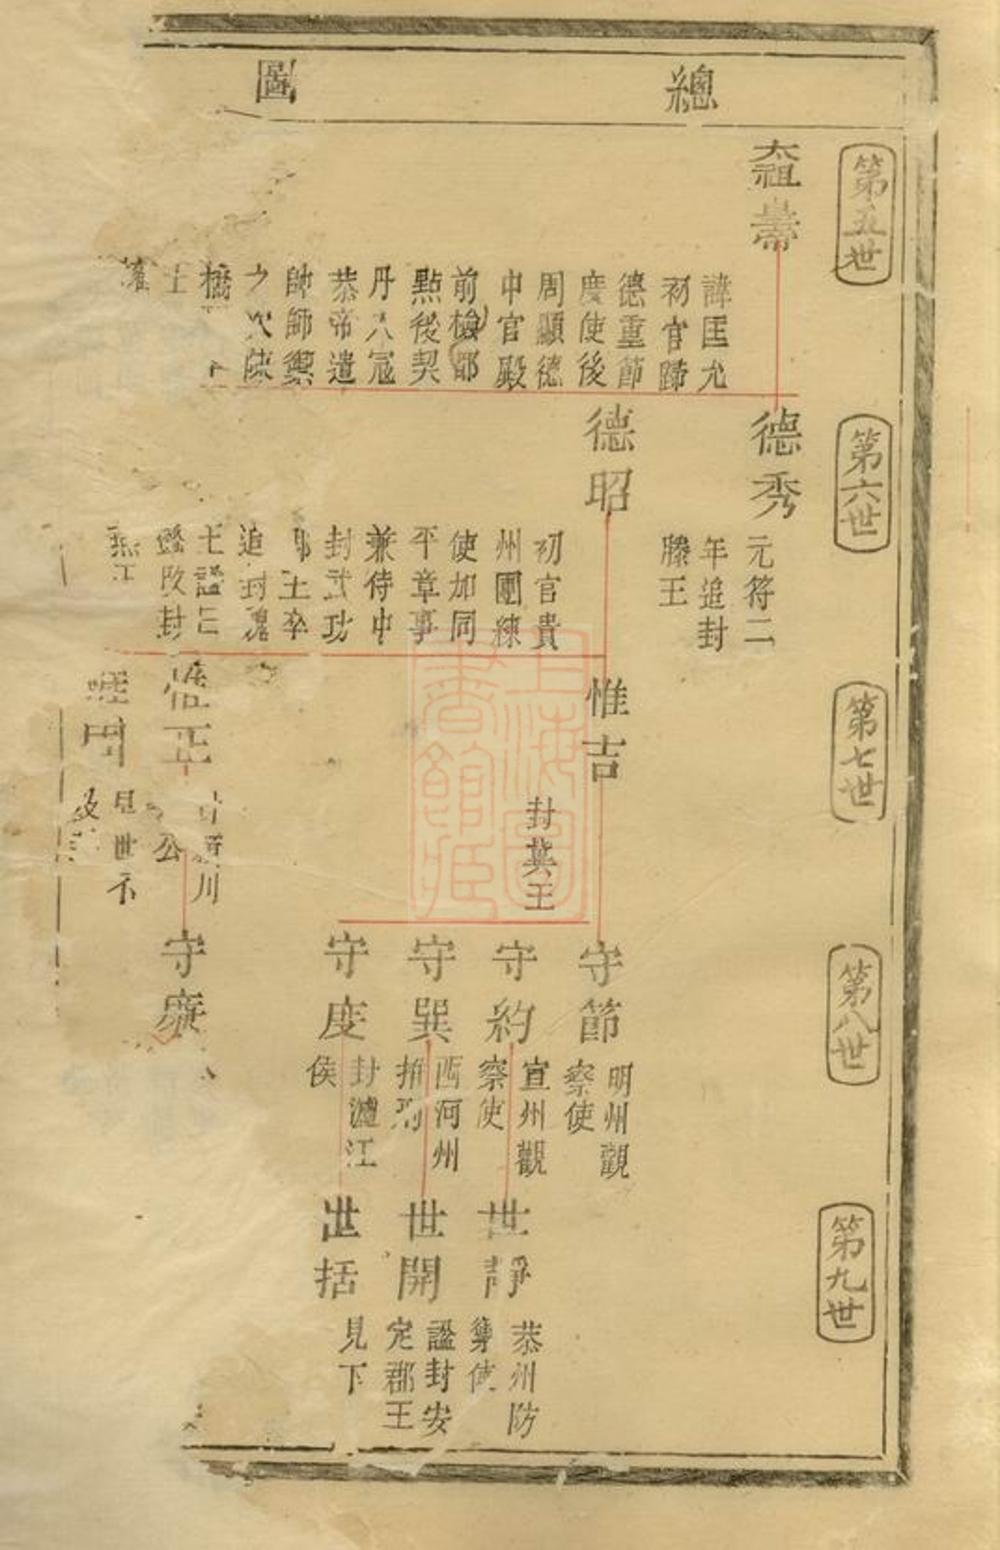 總圖
第五世
太祖
諱匡允
初官歸
德重節
度使後
周顯德
中官殿
前檢都
點後契
丹入寇
恭帝遣
帥師禦
之次陳
橋
第六世
德秀
元符二
年追封
滕王
德昭
初官貴
州團練
使加同
平章事
兼侍中
封武功
郡王卒
追封魏
王謚曰
懿改封
燕王
第七世
惟吉
封冀王
惟正
公
第八世
守節
明州觀
察使
守約
宣州觀
察使
守巽
西河州
守度
封瀘江
侯
守廉
第九世
世靜
恭州防
禦使
世開
謚封安
定郡王
世括
見下
上海圖書館藏